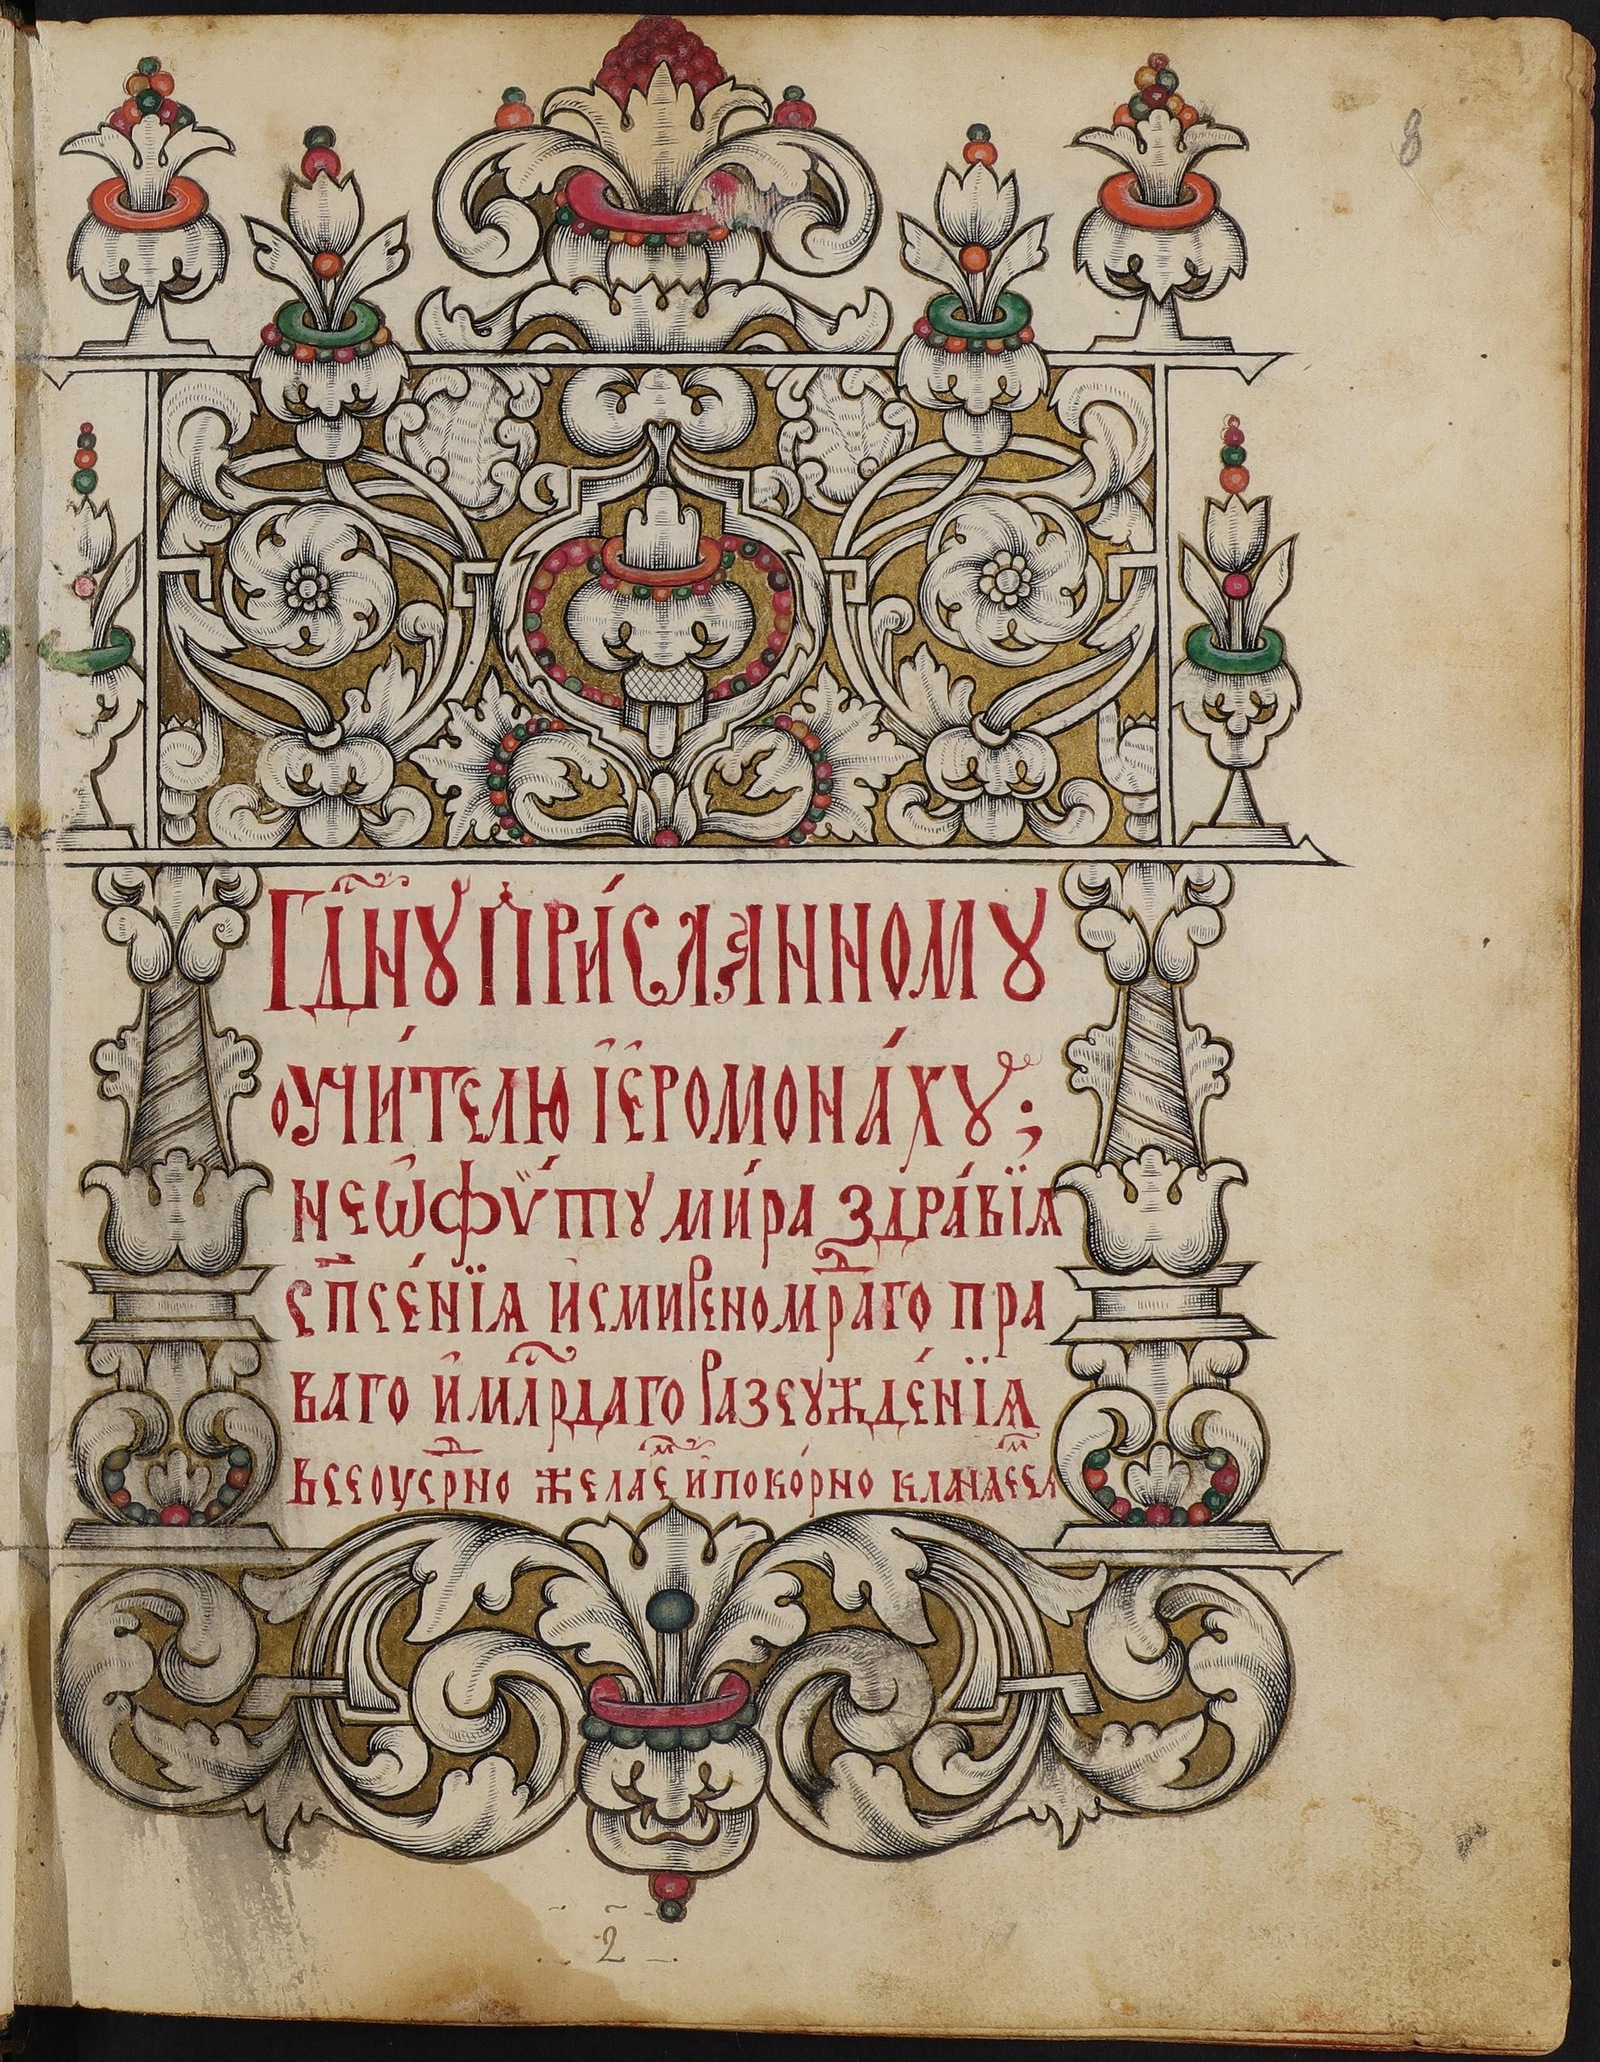 8
Гдⷭ҇нꙋ при́сланному
оучи́телю і҆еромона́хꙋ;
неѡ҆фѵ́тꙋ ми́ра здра́вїѧ
сп҃се́нїѧ и҆смиреномⷣраго пра
ваго и҆ млⷭ҇рдаго разсꙋжде́нїѧ
всеоусеⷣрно желаеⷨ и҆ поко́рно кланѧеⷨсѧ
2